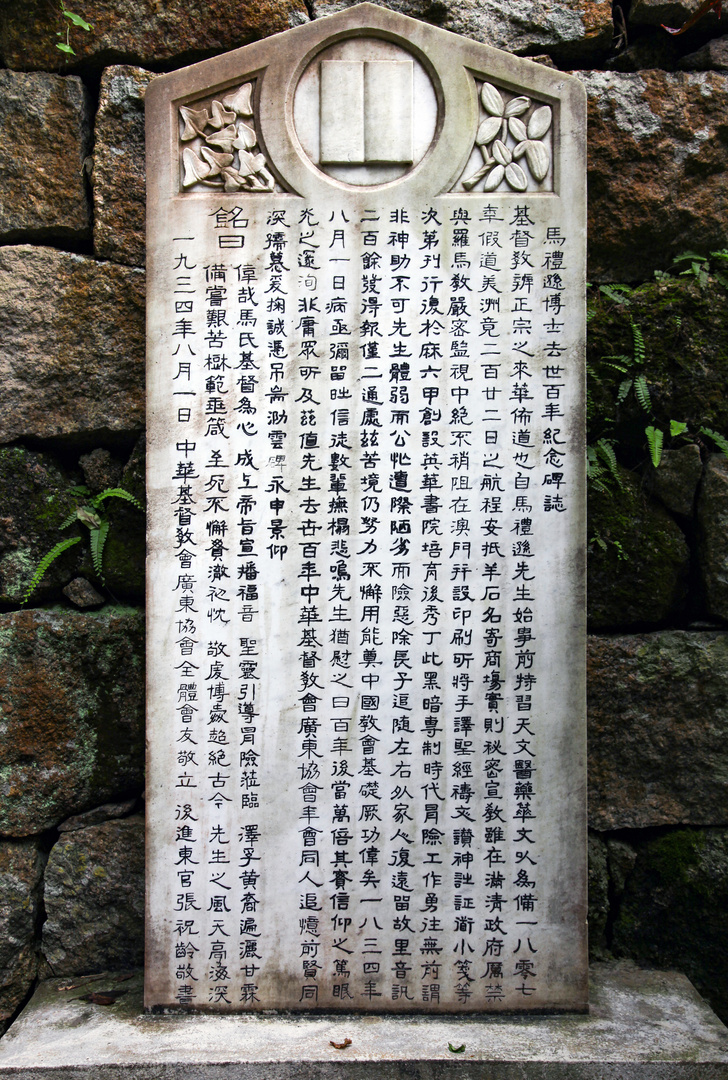 馬禮遜博士去世百年紀念碑誌
基督教澣正宗之來華佈道也自馬禮遜先生始事前特習天文醫藥華文以為備一八零七
年假道美洲竟二百廿二日之航程安抵羊石名寄商場實則秘密宣教雖在滿清政府厲禁
與羅馬教嚴密監視中絕不稍阻在澳門幷設印刷所將手譯聖經禱文讚神詩証衛小箋等
次第刊行復於麻六甲創設英華書院培育後秀丁此黑暗專制時代冒險工作勇往無前謂
非神助不可先生體弱而公忙遭際陋劣而險惡除長子追隨左右外家人復遠留故里音訊
二百餘發得報僅二通處玆苦境仍努力不懈用能奠中國教會基礎厥功偉矣一八三四年
八月一日病亟彌留時信徒數輩撫榻悲鳴先生猶慰之曰百年後當萬倍其賽信仰之篤眼
光之邃洵非庸眾所及茲值先生去世百年中華基督教會廣東協會年會同人追憶前賢同
深孺慕爰掬誠憑吊耑泐雲碑永申景仰
銘曰
偉哉馬氏基督為心 成上帝旨宣播福音 聖靈引導冒險蒞臨 澤孚黃裔遍灑甘霖
備嘗艱苦樹範垂箴 至死不懈賚澈初忱 敬虔博毅超絕古今 先生之風天高海深
一九三四年八月一日 中華基督教會廣東協會全體會友敬立 後進東官張祝齡敬書